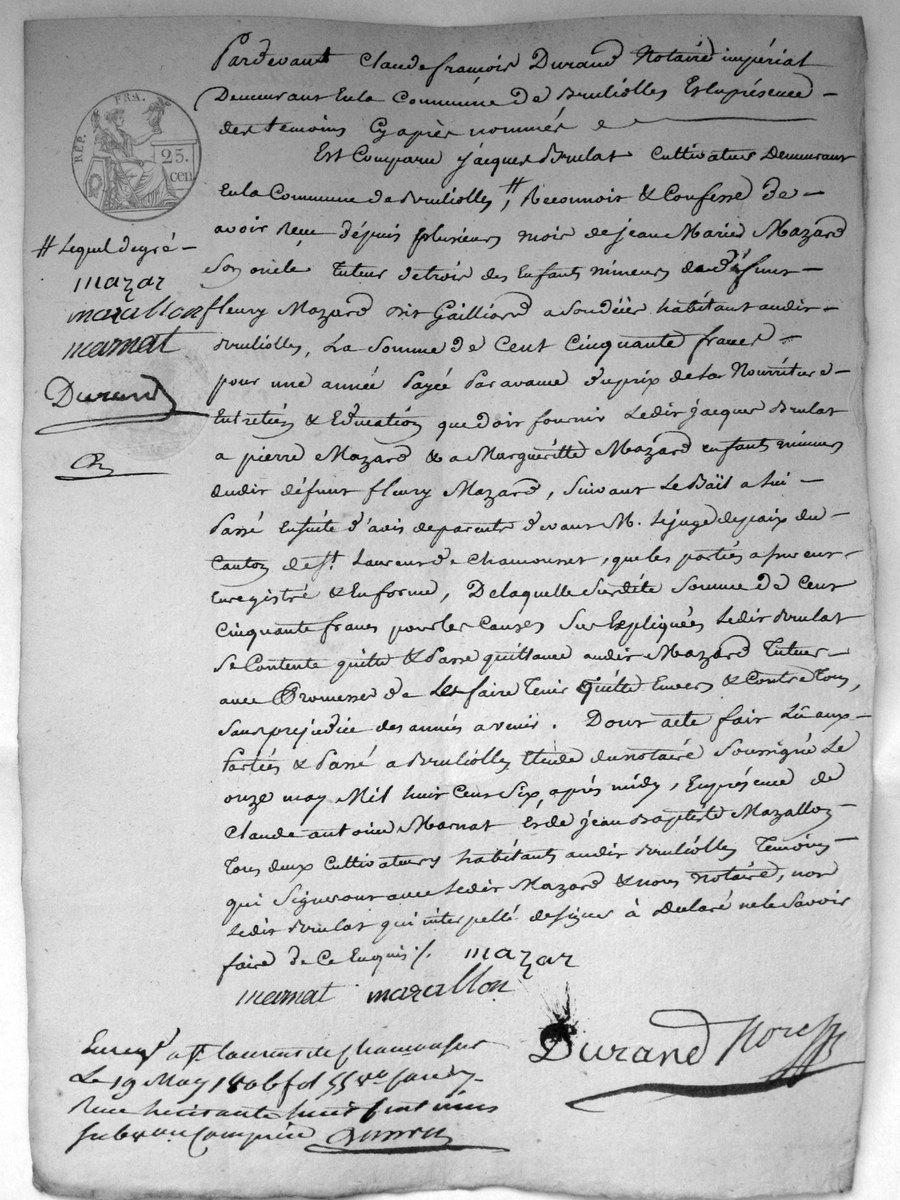 Pardevant Claude françois Durand Notaire impérial
Demeurant En la Commune de Brulliolles Et la présence
des temoins Cy après nommés
RÉP. FRA.
25.
cen
Est Comparu jacques Brulat Cultivateur Demeurant
En la Commune de Brulliolles, # Reconnoit & Confesse d'a-
avoir Reçu depuis plusieurs mois de jean Marie Mazard
# Lequel de gré
mazar
mazallon
marnat
Durand
Son oncle tuteur des Enfants mineurs de défunt
fleury Mazard dit Gailliard habitant audit
Brulliolles, La Somme de Cent Cinquante francs
pour une année Payée Par avance du prix de la Nourriture
Entretien & Education que doit fournir Ledit jacques Brulat
a pierre Mazard & a Marguéritte Mazard enfants mineurs
dudit défunt fleury Mazard, Suivant Le Bail a Lui
Passé Ensuite d'avis de parents devant M. Le juge de paix du
Canton de St. Laurent de Chamousset, que les parties assurent
Enregistré & En forme, De laquelle Susdite Somme de Cent
Cinquante francs pour les Causes Sus Expliquées Ledit Brulat
Se Contente quitte & Passe quittance audit Mazard Tuteur
avec Promesse de Le faire Tenir Quitte Envers & Contre Tous,
Sans préjudice des années a venir. Dont acte fait Lû aux
Parties & Passé a Brulliolles Etude du notaire Soussigné Le
onze may Mil huit Cent Six, après midy, En présence de
Claude antoine Marnat Et de jean Baptiste Mazallon
Tous deux Cultivateurs habitants audit Brulliolles Temoins
qui Signeront avec Ledit Mazard & nous Notaire, non
Ledit Brulat qui interpellé de signer à Déclaré ne le Savoir
faire de Ce Enquis ./. mazar
marnat mazallon
Durand Nore
Enregé a St Laurent de Chamousset
Le 19 May 1806 fol 55
Reçu
Subvon Comprise